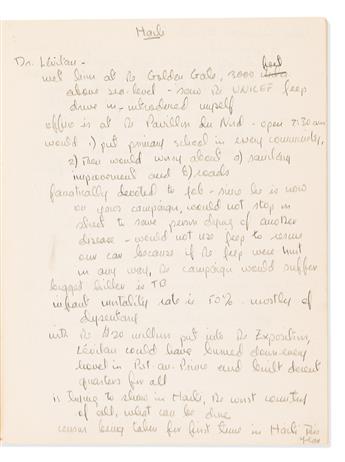 Haiti
Dr. Lévitan -
met him at the Golden Gate, 3000 feet
above sea-level - saw the UNICEF jeep
drive in - introduced myself
office is at the Pavillon du Nord - open 7:30 am
would 1) put primary school in every community,
2) then would worry about a) sanitary
improvement and b) roads
fanatically devoted to job - since he is now
on yaws campaign, would not stop in
street to save person dying of another
disease - would not use jeep to rescue
our car because if the jeep were hurt
in any way, the campaign would suffer
biggest killer is TB
infant mortality rate is 50% - mostly of
dysentery
with the $20 million put into the Exposition,
Lévitan could have burned down every
hovel in Port-au-Prince and built decent
quarters for all
is trying to show in Haiti, the worst country
of all, what can be done
census being taken for first time in Haiti this
year